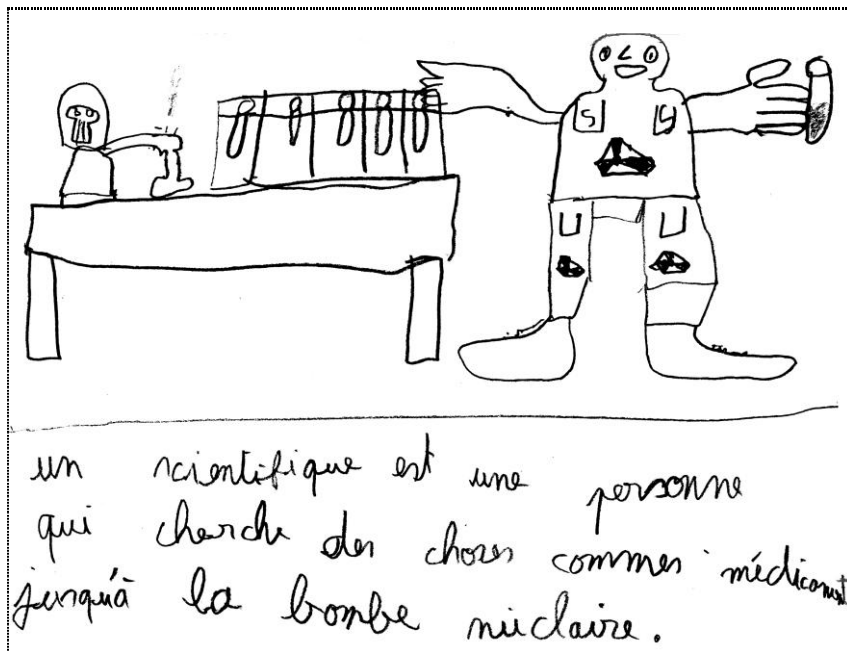 S S
U U
un scientifique est une personne
qui cherche des choses commes médicament
jusqu'à la bombe nuclaire.